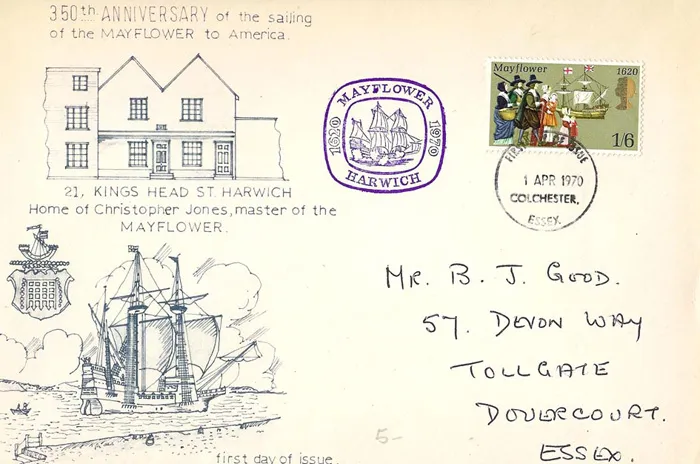 350th ANNIVERSARY of the sailing
of the MAYFLOWER to America.
21, KINGS HEAD ST. HARWICH
Home of Christopher Jones, master of the
MAYFLOWER.
first day of issue.
MAYFLOWER
1620
1970
HARWICH
Mayflower
1620
1/6
FIRST DAY OF ISSUE
1 APR 1970
COLCHESTER,
ESSEX.
MR. B. J. GOOD.
57. DEVON WAY
TOLLGATE
DOVERCOURT.
ESSEX.
5-